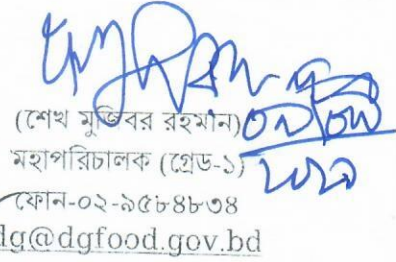 (শেখ মুজিবর রহমান)
মহাপরিচালক (গ্রেড-১)
ফোন-০২-৯৫৮৪৮৩৪
dg@dgfood.gov.bd